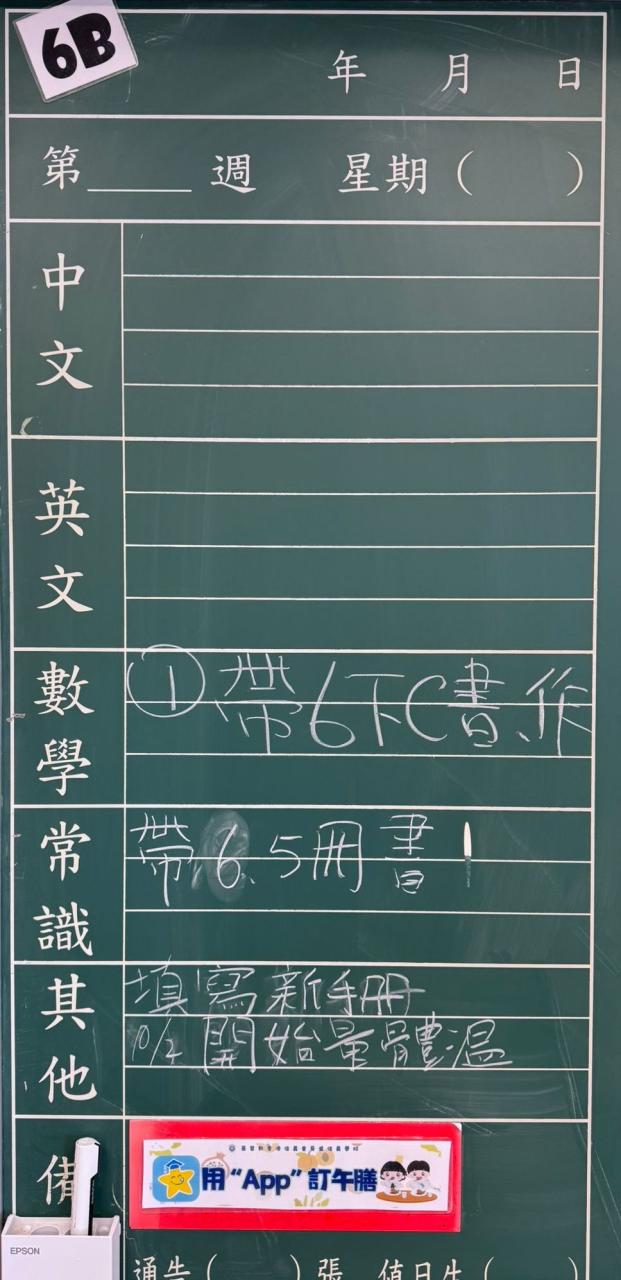 6B
年 月 日
第____週 星期( )
中文
英文
數學
①帶6下C書、作
常識
帶6、5冊書!
其他
填寫新手冊
10/2開始量體溫
備
用“App”訂午膳
EPSON
通告( )張 值日生( )